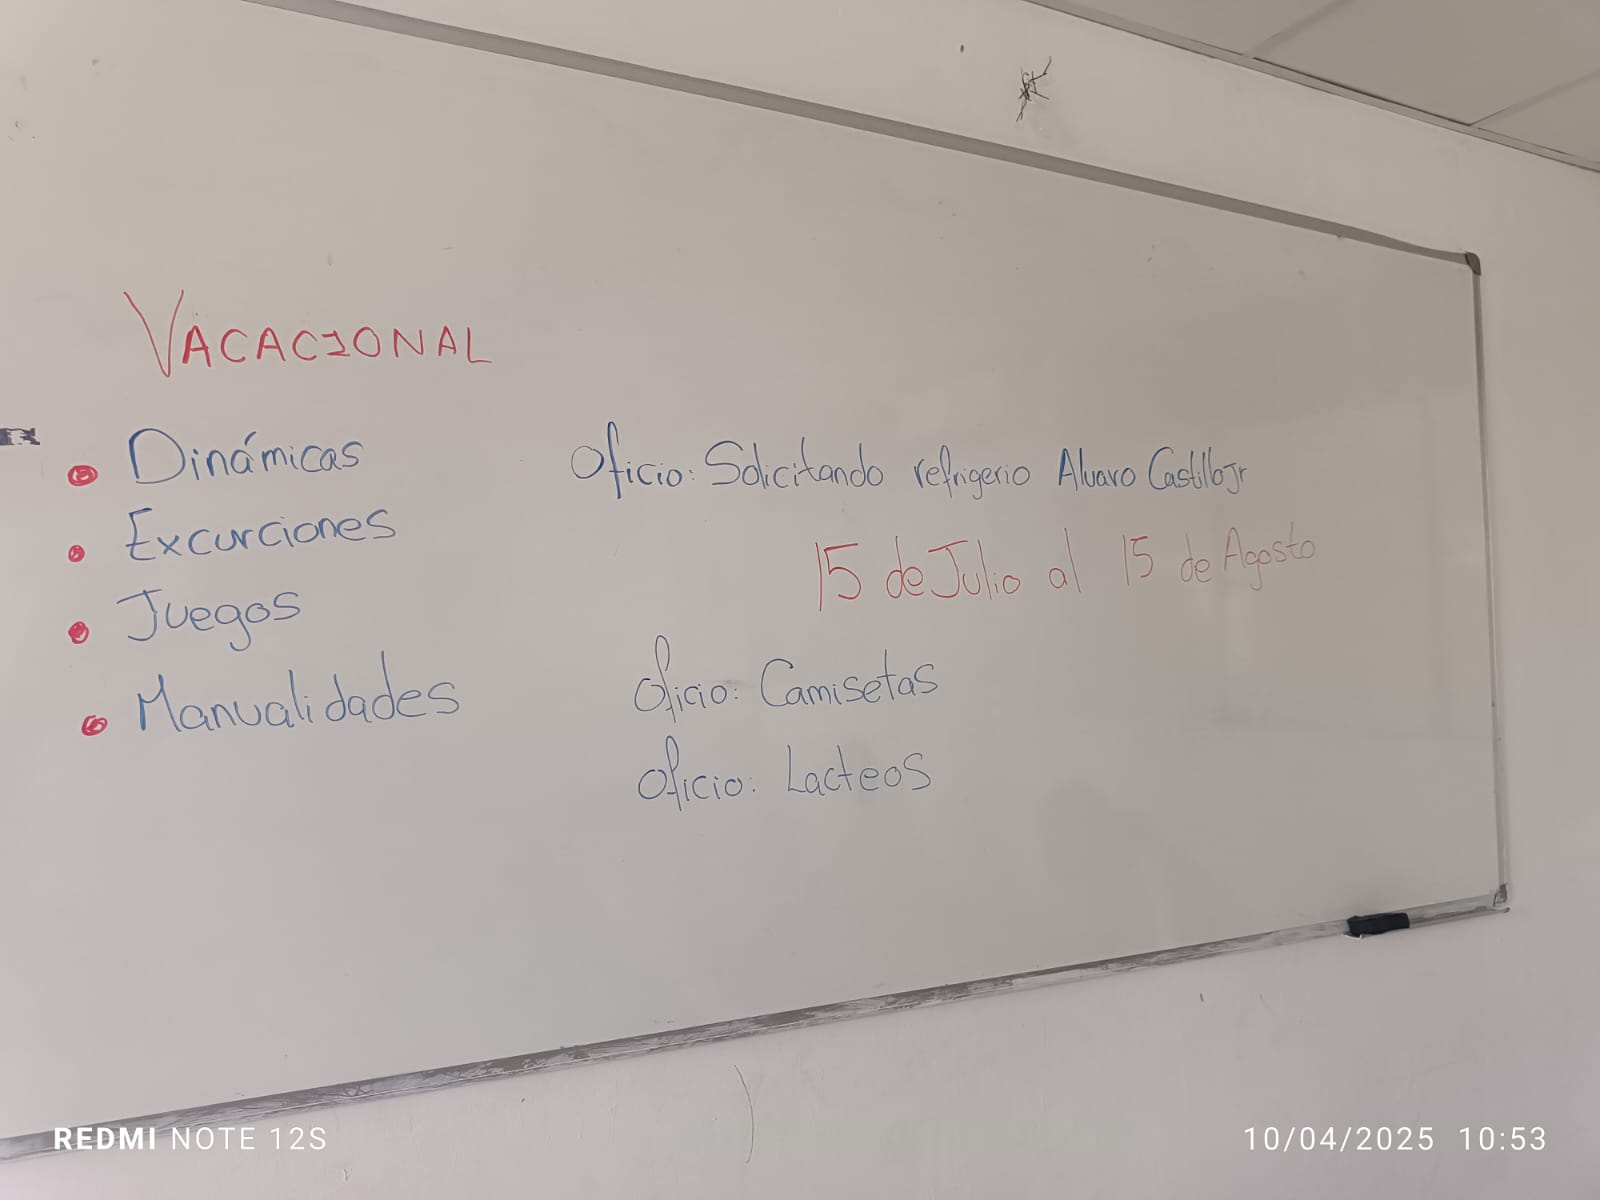 VACACIONAL
Dinámicas
Excurciones
Juegos
Manualidades
Oficio: Solicitando refrigerio Alvaro Castillo Jr
15 de Julio al 15 de Agosto
Oficio: Camisetas
Oficio: Lacteos
REDMI NOTE 12S
10/04/2025 10:53